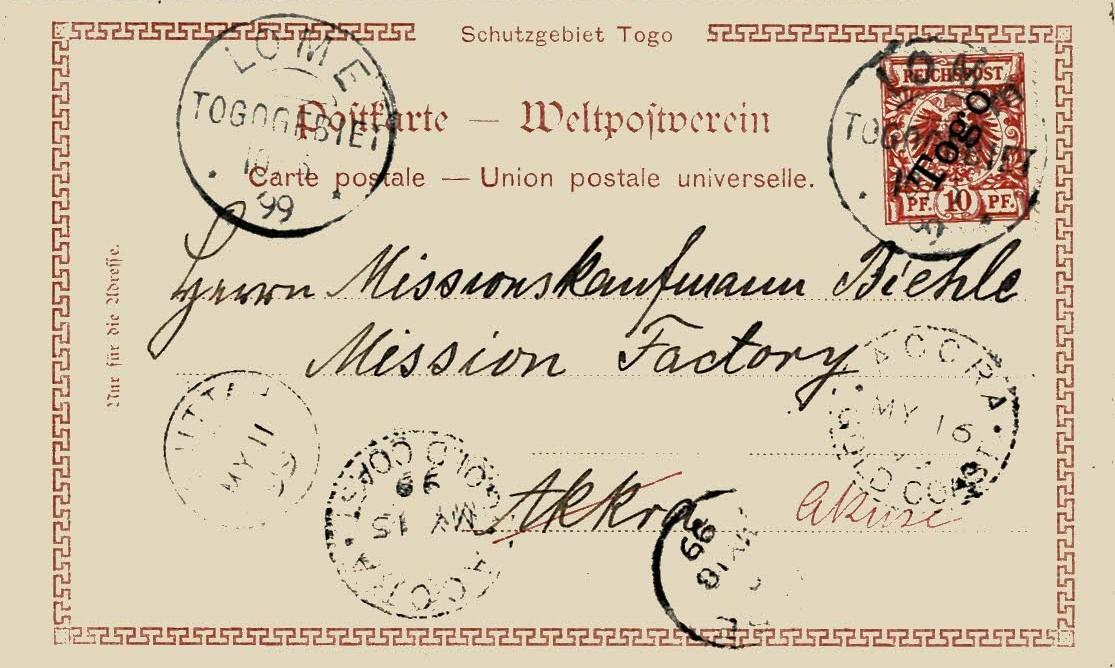 Schutzgebiet Togo
Postkarte — Weltpostverein
Carte postale — Union postale universelle.
LOME
TOGOGEBIET
99
REICHSPOST
PF. 10 PF.
Togo
LOME
TOGOGEBIET
Nur für die Adresse.
Herrn Missionskaufmann Biehle
Mission Factory
Akkra
Akuse
MY 11
ACCRA
MY 15
99
GOLD COAST
ACCRA
MY 16
GOLD COAST
MY 18
99